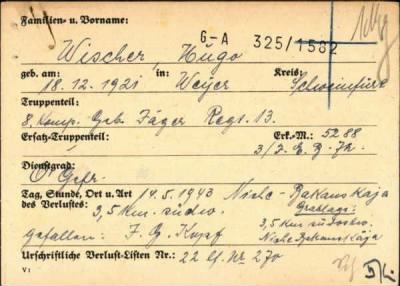 Familien- u. Vorname:
G-A 325/1582
Wischer, Hugo
geb. am: in: Kreis:
18.12.1921 Weyer Schweinfurt
Truppenteil:
8. Komp. Geb. Jäger Regt. 13.
Ersatz-Truppenteil Erk.-M.: 5288
3/J. E. B.
Dienstgrad:
O' Gefr.
Tag, Stunde, Ort u. Art 14.5.1943 Nishe-Bakanskaja
des Verlustes: Grablage:
3,5 km. südw. 3,5 km südw.
gefallen: F. G. Kopf Nishe Bakanskaja
Urschriftliche Verlust-Listen Nr.: 22 lf. Nr 270
V1